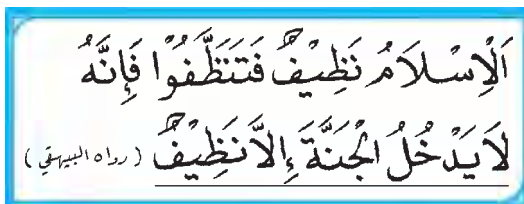 اَلْاِسْلَامُ نَظِيْفٌ فَتَنَظَّفُوْا فَاِنَّهُ
لَا يَدْخُلُ الْجَنَّةَ اِلَّا نَظِيْفٌ ( رواه البيهقي )